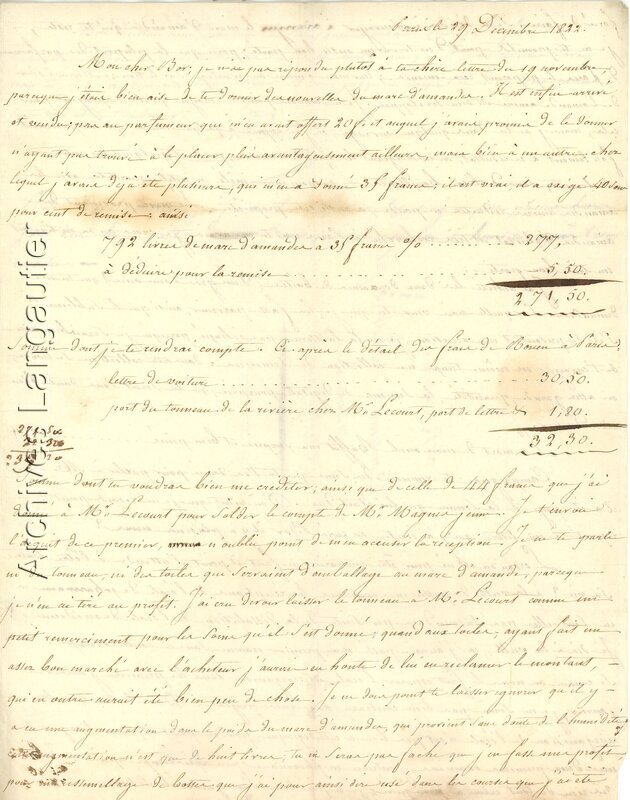 Paris le 29 Décembre 1822.
Mon cher Bor; je n'ai pas répondu plutôt à ta chère lettre du 19 novembre
parceque j'étais bien aise de te donner des nouvelles du marc d'amandes. Il est enfin arrivé
et vendu; pas au parfumeur qui m'en avait offert 20 f. et auquel j'avais promis de le donner
n'ayant pas trouvé à le placer plus avantageusement ailleurs, mais bien à un autre, chez
lequel j'avais déjà été plusieurs, qui m'en a donné 35 francs; il est vrai il a exigé 40 sous
pour cent de remise: ainsi
792 livres de marc d'amandes à 35 francs %. .......... 277.
à déduire pour la remise .......... 5,50.
271,50.
Somme dont je te rendrai compte. Ci après le détail des frais de Rouen à Paris.
lettre de voiture .......... 30,50.
port du tonneau de la rivière chez Mr. Lecourt, port de lettre & 1,80.
32,30.
Somme dont tu voudras bien me créditer; ainsi que de celle de 44 francs que j'ai
donné à Mr. Lecourt pour solder le compte de Mr. Magnes jeune. Je t'envoie
l'acquit de ce premier, n'oublie point de m'en accuser la réception. Je ne te parle
ni du tonneau, ni des toiles qui servaient d'emballage au marc d'amande, parceque
je n'en ai tiré au profit. J'ai cru devoir laisser le tonneau à Mr. Lecourt comme un
petit remerciment pour les soins qu'il s'est donné; quand aux toiles, ayant fait un
assez bon marché avec l'acheteur j'aurais eu honte de lui en réclamer le montant,
qui en outre aurait été bien peu de chose. Je ne dois point te laisser ignorer qu'il y
a eu une augmentation dans le poids du marc d'amandes, qui provient sans doute de l'humidité
augmentation n'est que de huit livres, tu ne seras pas faché que j'en fasse mon profit
pour ressemellage de bottes que j'ai pour ainsi dire usé dans les courses que j'ai été
Archives Langautier